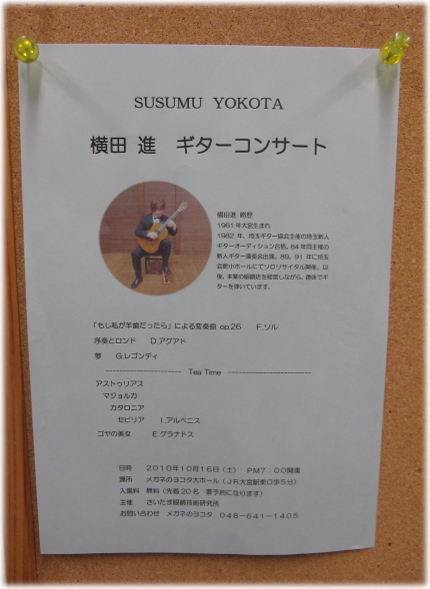 SUSUMU YOKOTA
横田 進 ギターコンサート
横田進 略歴
1961年大宮生まれ
1982年、埼玉ギター協会主催の埼玉新人
ギターオーディション合格。84年同主催の
新人ギター演奏会出演。89、91年に埼玉
会館小ホールにてソロリサイタル開催。以
後、本業の眼鏡店を経営しながら、趣味でギ
ターを弾いています。
「もし私が羊歯だったら」による変奏曲 op.26 F.ソル
序奏とロンド D.アグアド
夢 G.レゴンディ
Tea Time
アストゥリアス
マジョルカ
カタロニア
セビリア I.アルベニス
ゴヤの美女 E.グラナドス
日時 2010年10月16日(土) PM7:00開演
場所 メガネのヨコタ大ホール(JR大宮駅東口歩5分)
入場料 無料(先着20名 要予約になります)
主催 さいたま眼鏡技術研究所
お問い合わせ メガネのヨコタ 048-641-1405